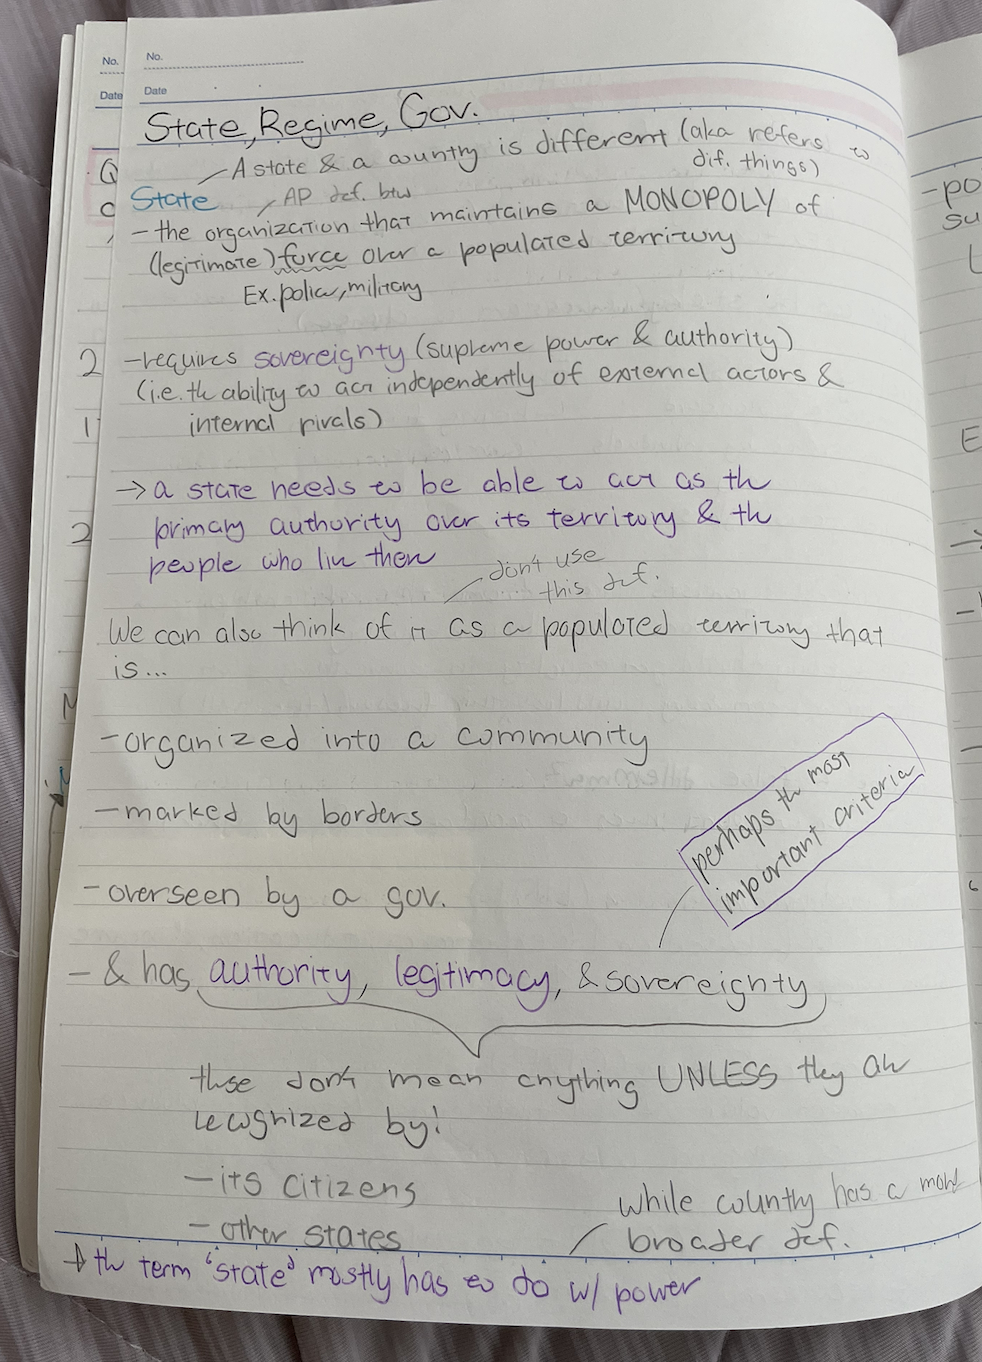 No.
No.
Date
Date
State, Regime, Gov.
A state & a country is different (aka refers to
dif. things)
State
AP def. btw
- the organization that maintains a MONOPOLY of
(legitimate) force over a populated territory
Ex. police, military
- requires sovereignty (supreme power & authority)
(i.e. the ability to act independently of external actors &
internal rivals)
→ a state needs to be able to act as the
primary authority over its territory & the
people who live there
don't use
this def.
We can also think of it as a populated territory that
is...
- organized into a community
- marked by borders
- overseen by a gov.
perhaps the most
important criteria
- & has authority, legitimacy, & sovereignty
these don't mean anything UNLESS they are
recognized by:
- its citizens
- other states
while country has a more
broader def.
→ the term 'state' mostly has to do w/ power
2
1
2
-po
su
E